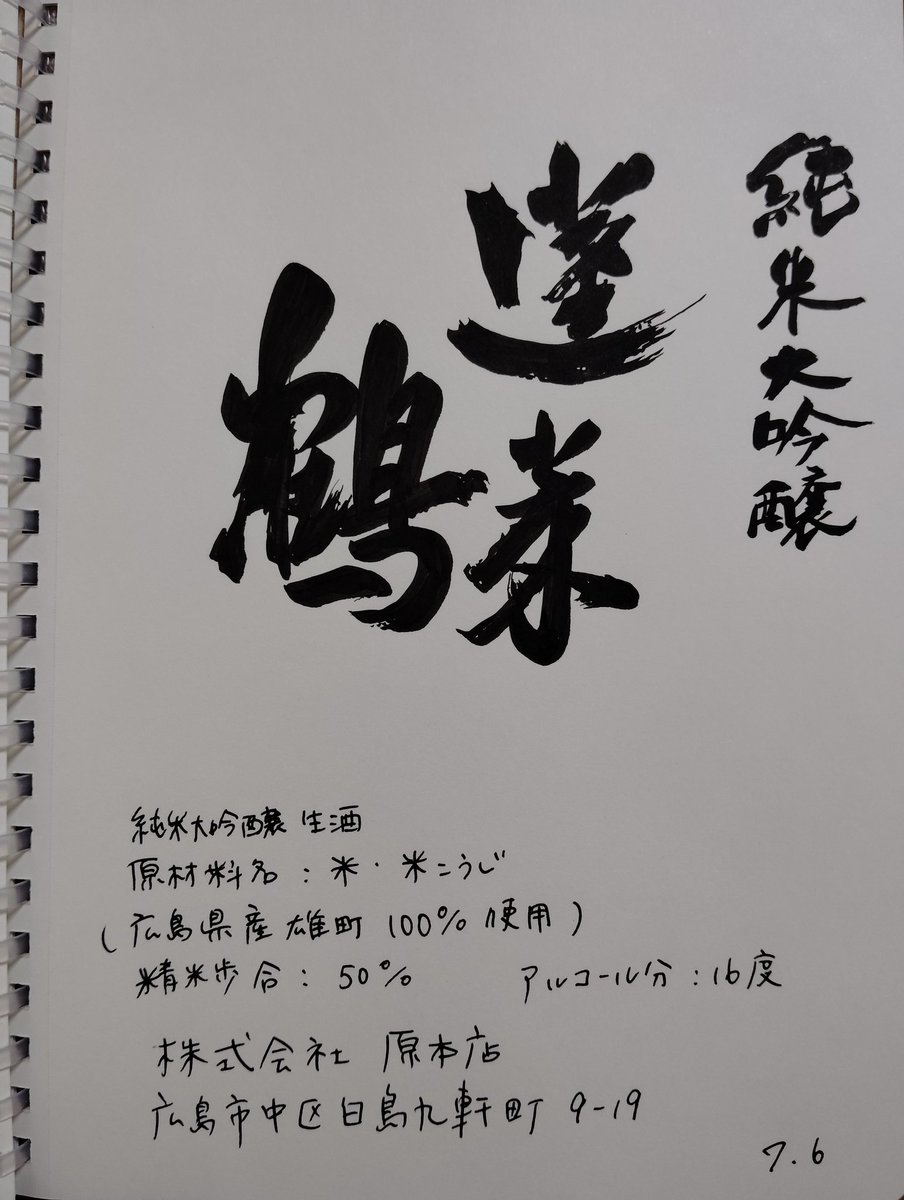 純米大吟醸
蓬莱
鶴
純米大吟醸 生酒
原材料名：米・米こうじ
（広島県産雄町 100％使用）
精米歩合：50％ アルコール分：16度
株式会社 原本店
広島市中区白島九軒町 9-19
7.6